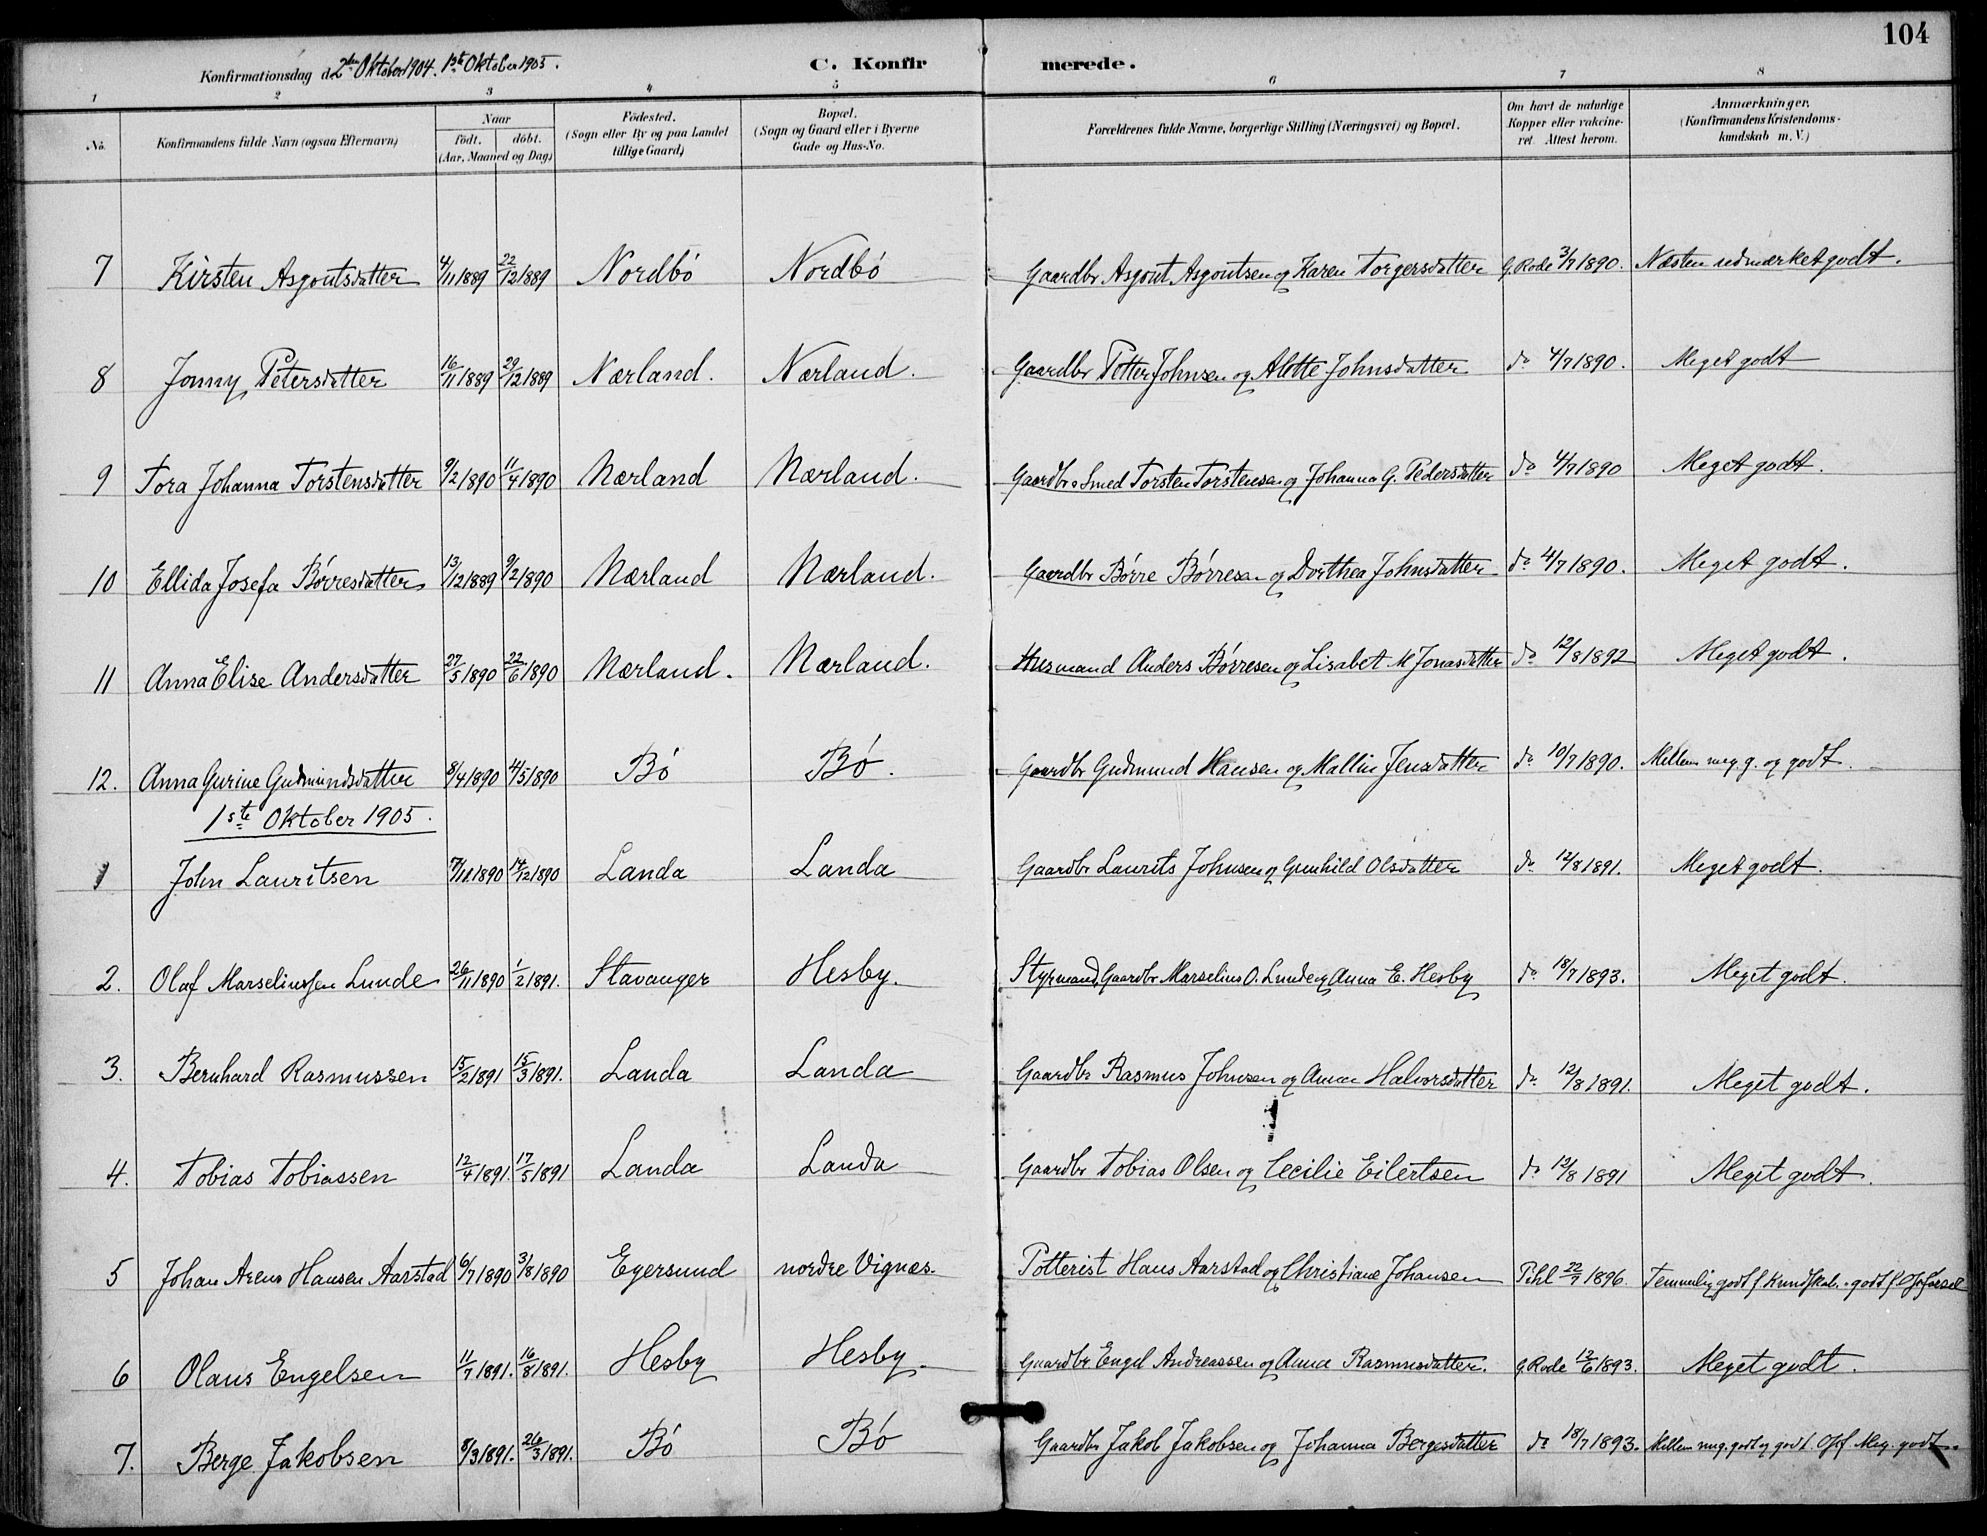 104
Konfirmationsdag d. 2den Oktober 1904. 1ste Oktober 1905.
C. Konfirmerede.
1 2 3 4 5 6 7 8
No. Konfirmandens fulde Navn (ogsaa Efternavn) Naar født. døbt. (Aar, Maaned og Dag) Fødested. (Sogn eller By og paa Landet tillige Gaard) Bopæl. (Sogn og Gaard eller i Byerne Gade og Hus-No. Forældrenes fulde Navne, borgerlige Stilling (Næringsvei) og Bopæl. Om havt de naturlige Kopper eller vakcineret. Attest herom. Anmærkninger. (Konfirmandens Kristendomskundskab m. V.)
7 Kirsten Asgoutsdatter 4/11 1889 22/12 1889 Nordbö Nordbö Gaardbr Asgout Asgoutsen og Karen Torgersdatter G. Rode 3/7 1890. Næsten udmærket godt.
8 Jonny Petersdatter 16/11 1889 29/12 1889 Nærland. Nærland. Gaardbr Petter Johnsen og Alette Johnsdatter do 4/7 1890. Meget godt
9 Tora Johanna Torstensdatter 9/2 1890 11/4 1890 Nærland Nærland. Gaardbr o Smed Torsten Torstensen og Johanna G. Pedersdatter do 4/7 1890 Meget godt.
10 Ellida Josefa Børresdatter 13/12 1889 9/2 1890 Nærland Nærland. Gaardbr Børre Børresen og Dorthea Johnsdatter do 4/7 1890. Meget godt.
11 Anna Elise Andersdatter 27/5 1890 22/6 1890 Nærland. Nærland. Husmand Anders Børresen og Lisabet M Jonasdatter do 12/8 1892 Meget godt.
12. Anna Gurine Gudmundsdatter 8/4 1890 4/5 1890 Bö Bö. Gaardbr Gudmund Hansen og Mallin Jensdatter do 10/7 1890. Mellem meg g. og godt.
1ste Oktober 1905.
1 John Lauritsen 7/11 1890 14/12 1890 Landa Landa Gaardbr Laurits Johnsen og Gunhild Olsdatter do 12/8 1891. Meget godt.
2. Olaf Marseliussen Lunde 26/11 1890 1/2 1891. Stavanger Hesby. Styrmand, Gaardbr Marselius O. Lunde og Anna E. Hesby do 18/7 1893. Meget godt.
3. Bernhard Rasmussen 15/2 1891 15/3 1891. Landa Landa Gaardbr Rasmus Johnsen og Anna Halvorsdatter do 12/8 1891. Meget godt.
4. Tobias Tobiassen 12/4 1891. 17/5 1891 Landa Landa Gaardbr Tobias Olsen og Cecilie Eilertsen do 12/8 1891 Meget godt.
5 Johan Arens Hansen Aarstad 6/7 1890 3/8 1890 Egersund nordre Vignæs. Potterist Hans Aarstad og Christiane Johansen Pihl 22/7 1896. Temmelig godt f Kundskab. godt f.
6 Olaus Engelsen 11/7 1891. 16/8 1891. Hesby Hesby. Gaardbr Engel Andreassen og Anna Rasmusdatter. G Rode 12/6 1893. Meget godt.
7. Berge Jakobsen 8/3 1891. 26/3 1891. Bö Bö Gaardbr Jakob Jakobsen og Johanna Bergesdatter do 18/7 1893. Mellem meg. godt og godt. Opf. Meg. godt.